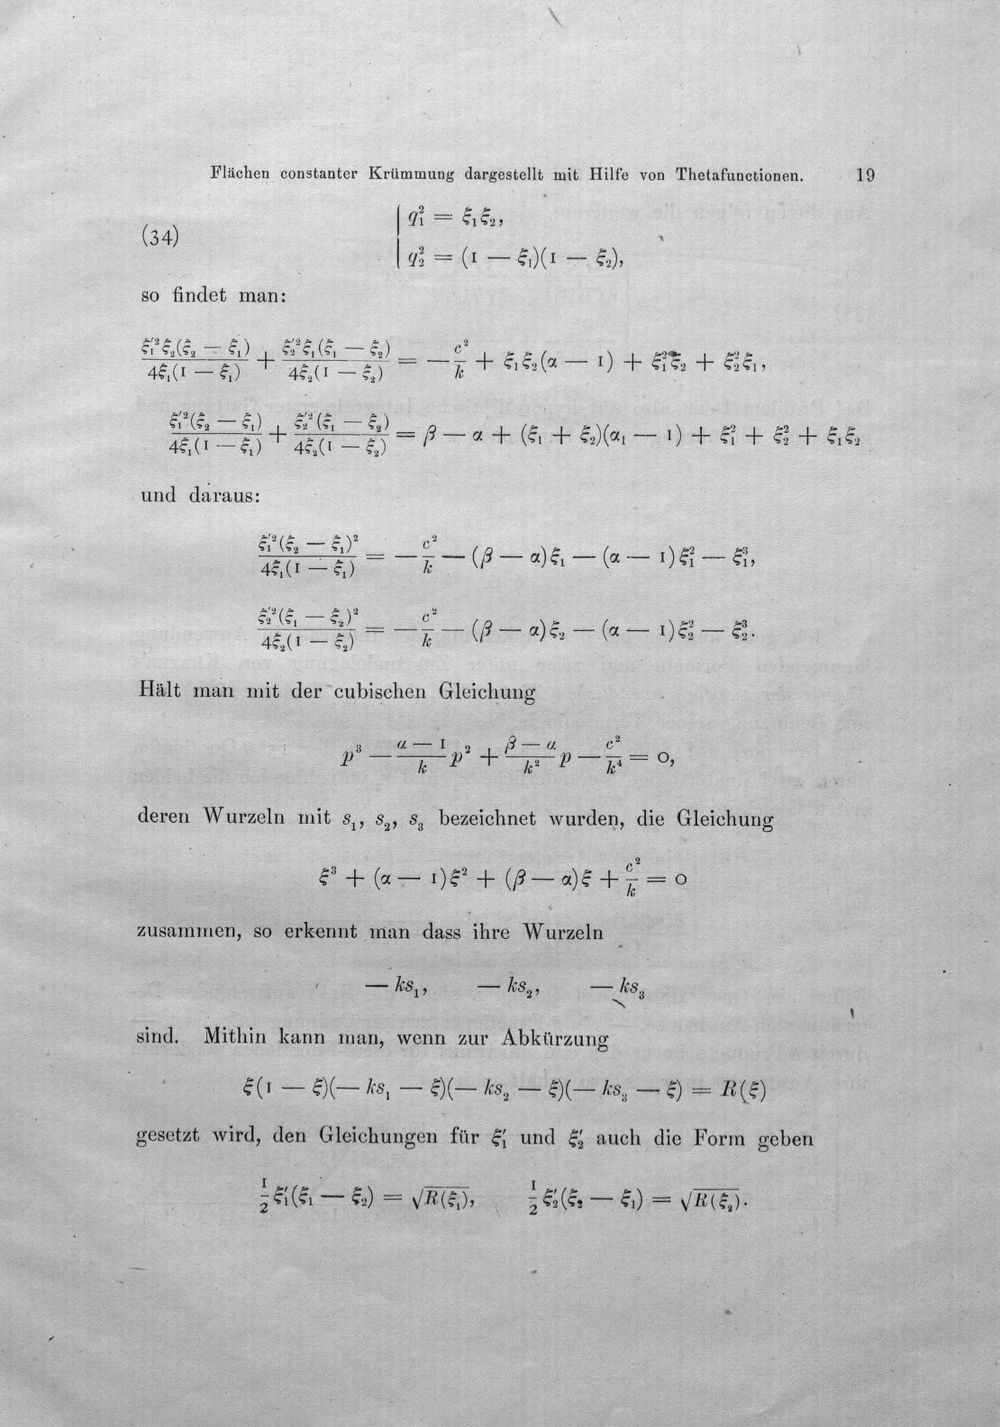 Flächen constanter Krümmung dargestellt mit Hilfe von Thetafunctionen. 19
(34) { q₁² = ξ₁ξ₂,
q₂² = (1 — ξ₁)(1 — ξ₂),
so findet man:
ξ₁′²ξ₂(ξ₂ — ξ₁)/4ξ₁(1 — ξ₁) + ξ₂′²ξ₁(ξ₁ — ξ₂)/4ξ₂(1 — ξ₂) = — c²/k + ξ₁ξ₂(α — 1) + ξ₁²ξ₂ + ξ₂²ξ₁,
ξ₁′²(ξ₂ — ξ₁)/4ξ₁(1 — ξ₁) + ξ₂′²(ξ₁ — ξ₂)/4ξ₂(1 — ξ₂) = β — α + (ξ₁ + ξ₂)(α₁ — 1) + ξ₁² + ξ₂² + ξ₁ξ₂
und daraus:
ξ₁′²(ξ₂ — ξ₁)²/4ξ₁(1 — ξ₁) = — c²/k — (β — α)ξ₁ — (α — 1)ξ₁² — ξ₁³,
ξ₂′²(ξ₁ — ξ₂)²/4ξ₂(1 — ξ₂) = — c²/k — (β — α)ξ₂ — (α — 1)ξ₂² — ξ₂³.
Hält man mit der cubischen Gleichung
p³ — (α — 1)/k p² + (β — α)/k² p — c²/k⁴ = 0,
deren Wurzeln mit s₁, s₂, s₃ bezeichnet wurden, die Gleichung
ξ³ + (α — 1)ξ² + (β — α)ξ + c²/k = 0
zusammen, so erkennt man dass ihre Wurzeln
— ks₁, — ks₂, — ks₃
sind. Mithin kann man, wenn zur Abkürzung
ξ(1 — ξ)(— ks₁ — ξ)(— ks₂ — ξ)(— ks₃ — ξ) = R(ξ)
gesetzt wird, den Gleichungen für ξ₁′ und ξ₂′ auch die Form geben
1/2 ξ₁′(ξ₁ — ξ₂) = √R(ξ₁), 1/2 ξ₂′(ξ₂ — ξ₁) = √R(ξ₂).